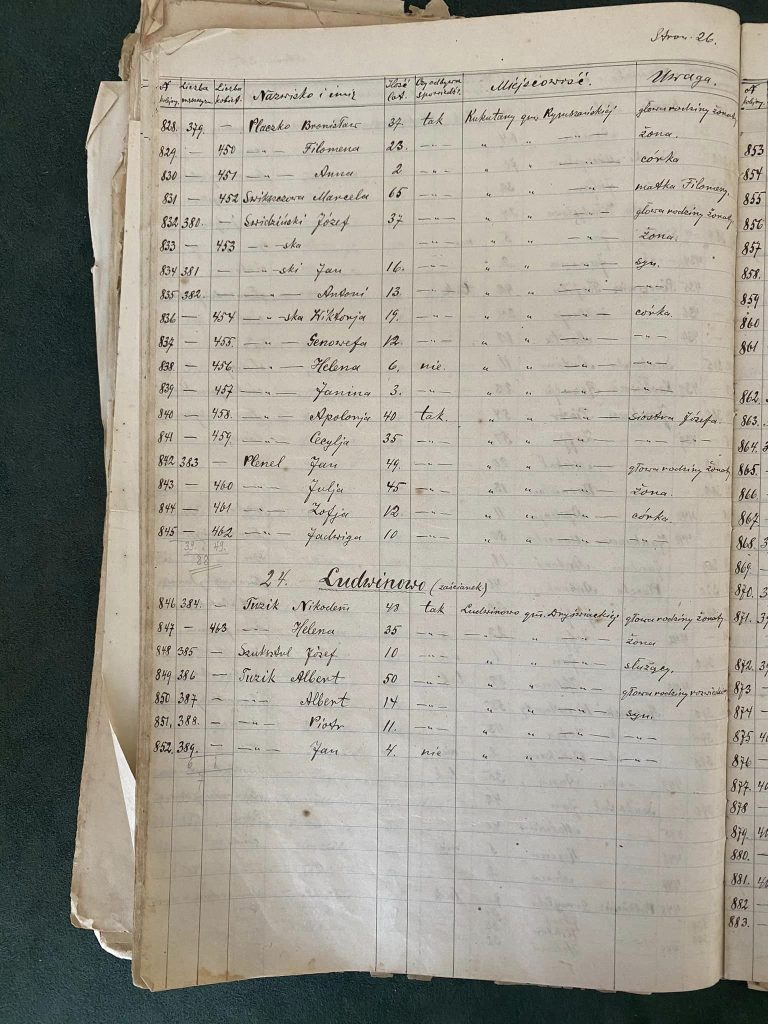 Stron. 26.
№ kolejny. Liczba mężczyzn Liczba kobiet. Nazwisko i imię Ilość lat. Czy odbywa spowiedź. Miejscowość. Uwaga.
828. 379. — Płaczko Bronisław 37. tak Kukutany gm. głowa rodziny żonaty
829. — 450 —„— Filomena 23. —„— „ „ —„— żona.
830 — 451 —„— Anna 2 —„— „ „ —„— córka
831 — 452 Marcela 65 —„— „ „ —„— matka Filomeny.
832 380. — Świdziński Józef 37 —„— „ „ —„— głowa rodziny żonaty
833 — 453 —„— ska —„— „ „ „ żona.
834 381 — —„— ski Jan 16. —„— „ „ —„— syn.
835 382. — —„— Antoni 13. —„— „ „ —„— —„—
836 — 454 —„— ska Wiktorja 19. —„— „ „ —„— córka.
837 — 455. —„— Genowefa 12. —„— „ „ —„— —„—
838. — 456. —„— Helena 6. nie. „ „ —„— —„—
839 — 457 —„— Janina 3. —„— „ „ —„— —„—
840 — 458. —„— Apolonja 40 tak. „ „ —„— siostra Józefa.
841 — 459. —„— Cecylja 35 —„— „ „ —„— —„— —„—
842 383 — Plenel Jan 49. —„— „ „ —„— głowa rodziny żonaty
843 — 460 —„— Julja 45 —„— „ „ —„— żona.
844 — 461 —„— Zofja 12 —„— „ „ —„— córka
845 — 462 —„— Jadwiga 10 —„— „ „ —„— —„—
39. 49.
88
24. Ludwinowo (zaścianek)
846 384. — Tuzik Nikodem 48 tak Ludwinowo gm. głowa rodziny żonaty
847 — 463 —„— Helena 35 —„— —„— „ —„— żona
848 385 — Józef 10 —„— „ „ —„— służący.
849 386 — Tuzik Albert 50 —„— „ „ —„— głowa rodziny
850 387 — —„— Albert 14 —„— „ „ —„— syn.
851. 388. — —„— Piotr 11. —„— „ „ —„— —„—
852. 389. — —„— Jan 4. nie „ „ —„— —„—
6 1
7
№ kolejny.
853
854
855
856
857
858.
859
860
861
862.
863.
864.
865.
866.
867
868.
869.
870.
871.
872.
873
874
875
876
877.
878
879.
880.
881.
882
883.